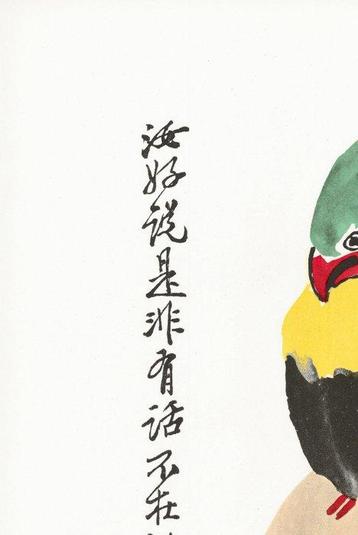 汝好说是非有话不在